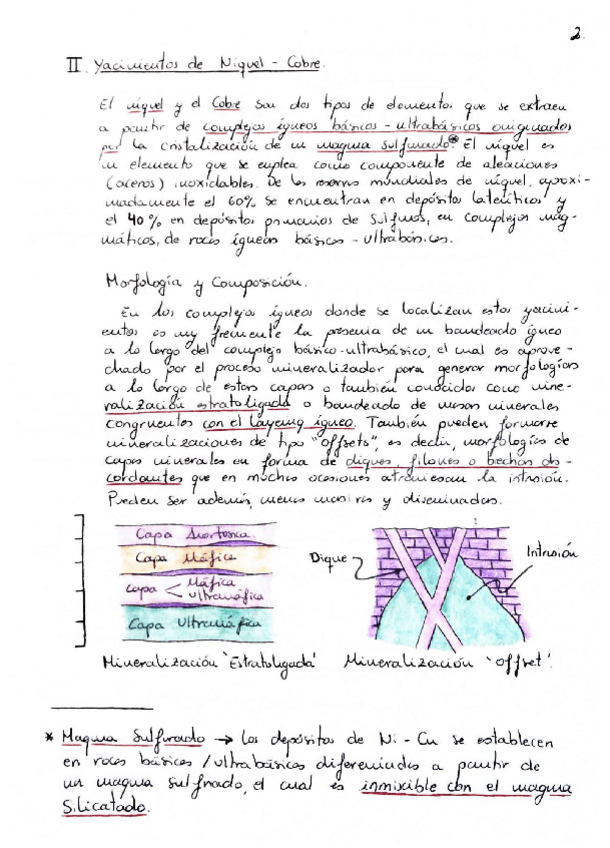 2
II. Yacimientos de Niquel - Cobre.
El niquel y el Cobre son dos tipos de elementos que se extraen
a partir de complejos ígneos básicos - ultrabásicos originados
por la cristalización de un magma sulfurado*. El niquel es
un elemento que se emplea como componente de aleaciones
(aceros) inoxidables. De las reservas mundiales de niquel, aproxi-
madamente el 60% se encuentran en depósitos lateríticos y
el 40% en depósitos primarios de Sulfuros, en complejos mag-
máticos, de rocas ígneas básicas - ultrabásicas.
Morfología y Composición.
En los complejos ígneos donde se localizan estos yacimi-
entos es muy frecuente la presencia de un bandeado ígneo
a lo largo del complejo básico-ultrabásico, el cual es aprove-
chado por el proceso mineralizador para generar morfologías
a lo largo de estas capas o también conocidas como mine-
ralización estratoligada o bandeado de masas minerales
congruentes con el layering ígneo. También pueden formarse
mineralizaciones de tipo "offsets", es decir, morfologías de
capas minerales en forma de diques, filones o brechas dis-
cordantes que en muchas ocasiones atraviesan la intrusión.
Pueden ser además, menas masivas y diseminadas.
Capa Anortosica
Capa Máfica
Capa < Máfica
Ultramáfica
Capa Ultramáfica
Mineralización 'Estratoligada'
Dique
Intrusión
Mineralización 'offset'.
* Magma Sulfurado → Los depósitos de Ni - Cu se establecen
en rocas básicas / ultrabásicas diferenciadas a partir de
un magma sulfurado, el cual es inmiscible con el magma
Silicatado.